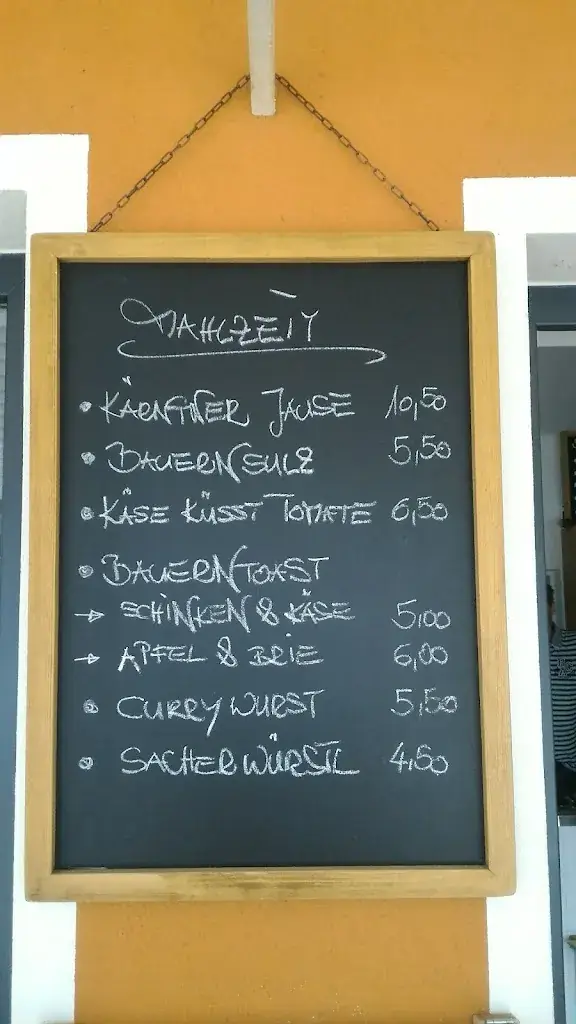 MAHLZEIT
• KÄRNTNER JAUSE 10,50
• BAUERNSULZ 5,50
• KÄSE KÜSST TOMATE 6,50
• BAUERNTOAST
→ SCHINKEN & KÄSE 5,00
→ APFEL & BRIE 6,00
• CURRYWURST 5,50
• SACHERWÜRSTL 4,50